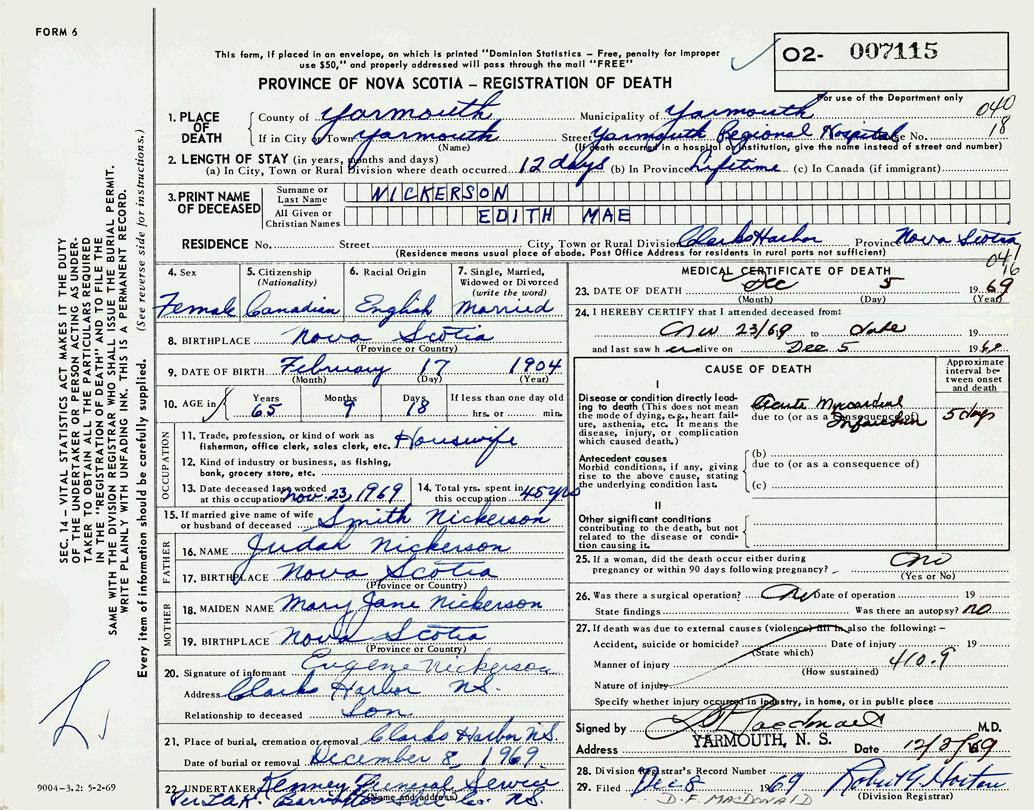 FORM 6
This form, if placed in an envelope, on which is printed "Dominion Statistics – Free, penalty for improper
use $50," and properly addressed will pass through the mail "FREE"
PROVINCE OF NOVA SCOTIA – REGISTRATION OF DEATH
02- 007115
For use of the Department only
040
18
1. PLACE OF DEATH County of Yarmouth Municipality of Yarmouth
If in City or Town Yarmouth Street Yarmouth Regional Hospital No.
(Name) (If death occurred in a hospital or institution, give the name instead of street and number)
2. LENGTH OF STAY (in years, months and days)
(a) In City, Town or Rural Division where death occurred 12 days (b) In Province Lifetime (c) In Canada (if immigrant)
3. PRINT NAME OF DECEASED Surname or Last Name NICKERSON
All Given or Christian Names EDITH MAE
RESIDENCE No. Street City, Town or Rural Division Clarks Harbor Province Nova Scotia
(Residence means usual place of abode. Post Office Address for residents in rural parts not sufficient)
041
16
4. Sex Female
5. Citizenship (Nationality) Canadian
6. Racial Origin English
7. Single, Married, Widowed or Divorced (write the word) Married
8. BIRTHPLACE Nova Scotia
(Province or Country)
9. DATE OF BIRTH February 17 1904
(Month) (Day) (Year)
10. AGE in Years 65 Months 9 Days 18 If less than one day old hrs. or min.
OCCUPATION
11. Trade, profession, or kind of work as fisherman, office clerk, sales clerk, etc. Housewife
12. Kind of industry or business, as fishing, bank, grocery store, etc.
13. Date deceased last worked at this occupation Nov. 23, 1969
14. Total yrs. spent in this occupation 45 yrs
15. If married give name of wife or husband of deceased Smith Nickerson
FATHER
16. NAME Judah Nickerson
17. BIRTHPLACE Nova Scotia
(Province or Country)
MOTHER
18. MAIDEN NAME Mary Jane Nickerson
19. BIRTHPLACE Nova Scotia
(Province or Country)
20. Signature of informant Eugene Nickerson
Address Clarks Harbor N.S.
Relationship to deceased Son
21. Place of burial, cremation or removal Clarks Harbor N.S.
Date of burial or removal December 8, 1969
22. UNDERTAKER Kenney Funeral Service
(Name and address)
N.S.
MEDICAL CERTIFICATE OF DEATH
23. DATE OF DEATH Dec 5 1969
(Month) (Day) (Year)
24. I HEREBY CERTIFY that I attended deceased from:
Nov 23/69 to date 19
and last saw h er alive on Dec 5 1969
CAUSE OF DEATH
Approximate interval between onset and death
I
Disease or condition directly leading to death (This does not mean the mode of dying, e.g., heart failure, asthenia, etc. It means the disease, injury, or complication which caused death.)
Acute Myocardial
due to (or as a consequence of) Infarction 5 days
Antecedent causes
Morbid conditions, if any, giving rise to the above cause, stating the underlying condition last.
(b)
due to (or as a consequence of)
(c)
II
Other significant conditions
contributing to the death, but not related to the disease or condition causing it.
25. If a woman, did the death occur either during pregnancy or within 90 days following pregnancy? No
(Yes or No)
26. Was there a surgical operation? No Date of operation 19
State findings Was there an autopsy? no
27. If death was due to external causes (violence) fill in also the following: –
Accident, suicide or homicide? Date of injury 19
(State which)
Manner of injury 410.9
(How sustained)
Nature of injury
Specify whether injury occurred in industry, in home, or in public place
Signed by M.D.
YARMOUTH, N. S.
Address Date 12/8/69
28. Division Registrar's Record Number
29. Filed Dec 8 1969 Robert G. Horton
D.F. MACDONALD (Division Registrar)
SEC. 14 – VITAL STATISTICS ACT MAKES IT THE DUTY
OF THE UNDERTAKER OR PERSON ACTING AS UNDER-
TAKER TO OBTAIN ALL THE PARTICULARS REQUIRED
IN THE "REGISTRATION OF DEATH" AND TO FILE THE
SAME WITH THE DIVISION REGISTRAR WHO SHALL ISSUE THE BURIAL PERMIT.
WRITE PLAINLY WITH UNFADING INK. THIS IS A PERMANENT RECORD.
Every item of information should be carefully supplied. (See reverse side for instructions.)
9004–3.2: 5-2-69